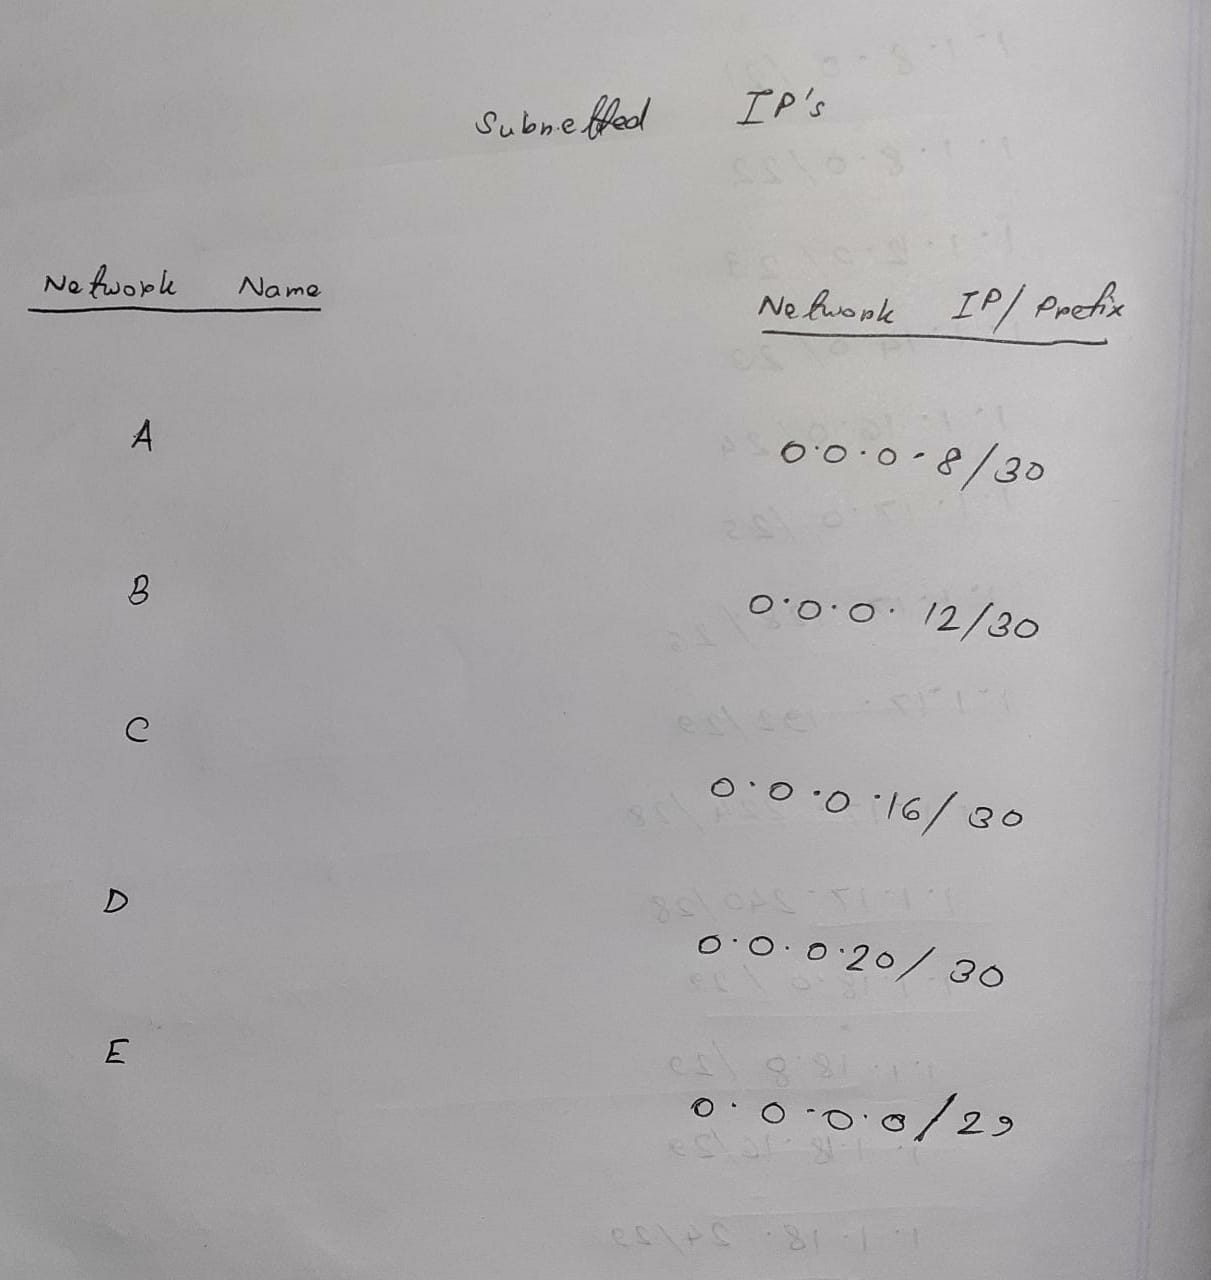 Subnetted IP's
Network Name Network IP/Prefix
A 0.0.0.8/30
B 0.0.0.12/30
C 0.0.0.16/30
D 0.0.0.20/30
E 0.0.0.0/29